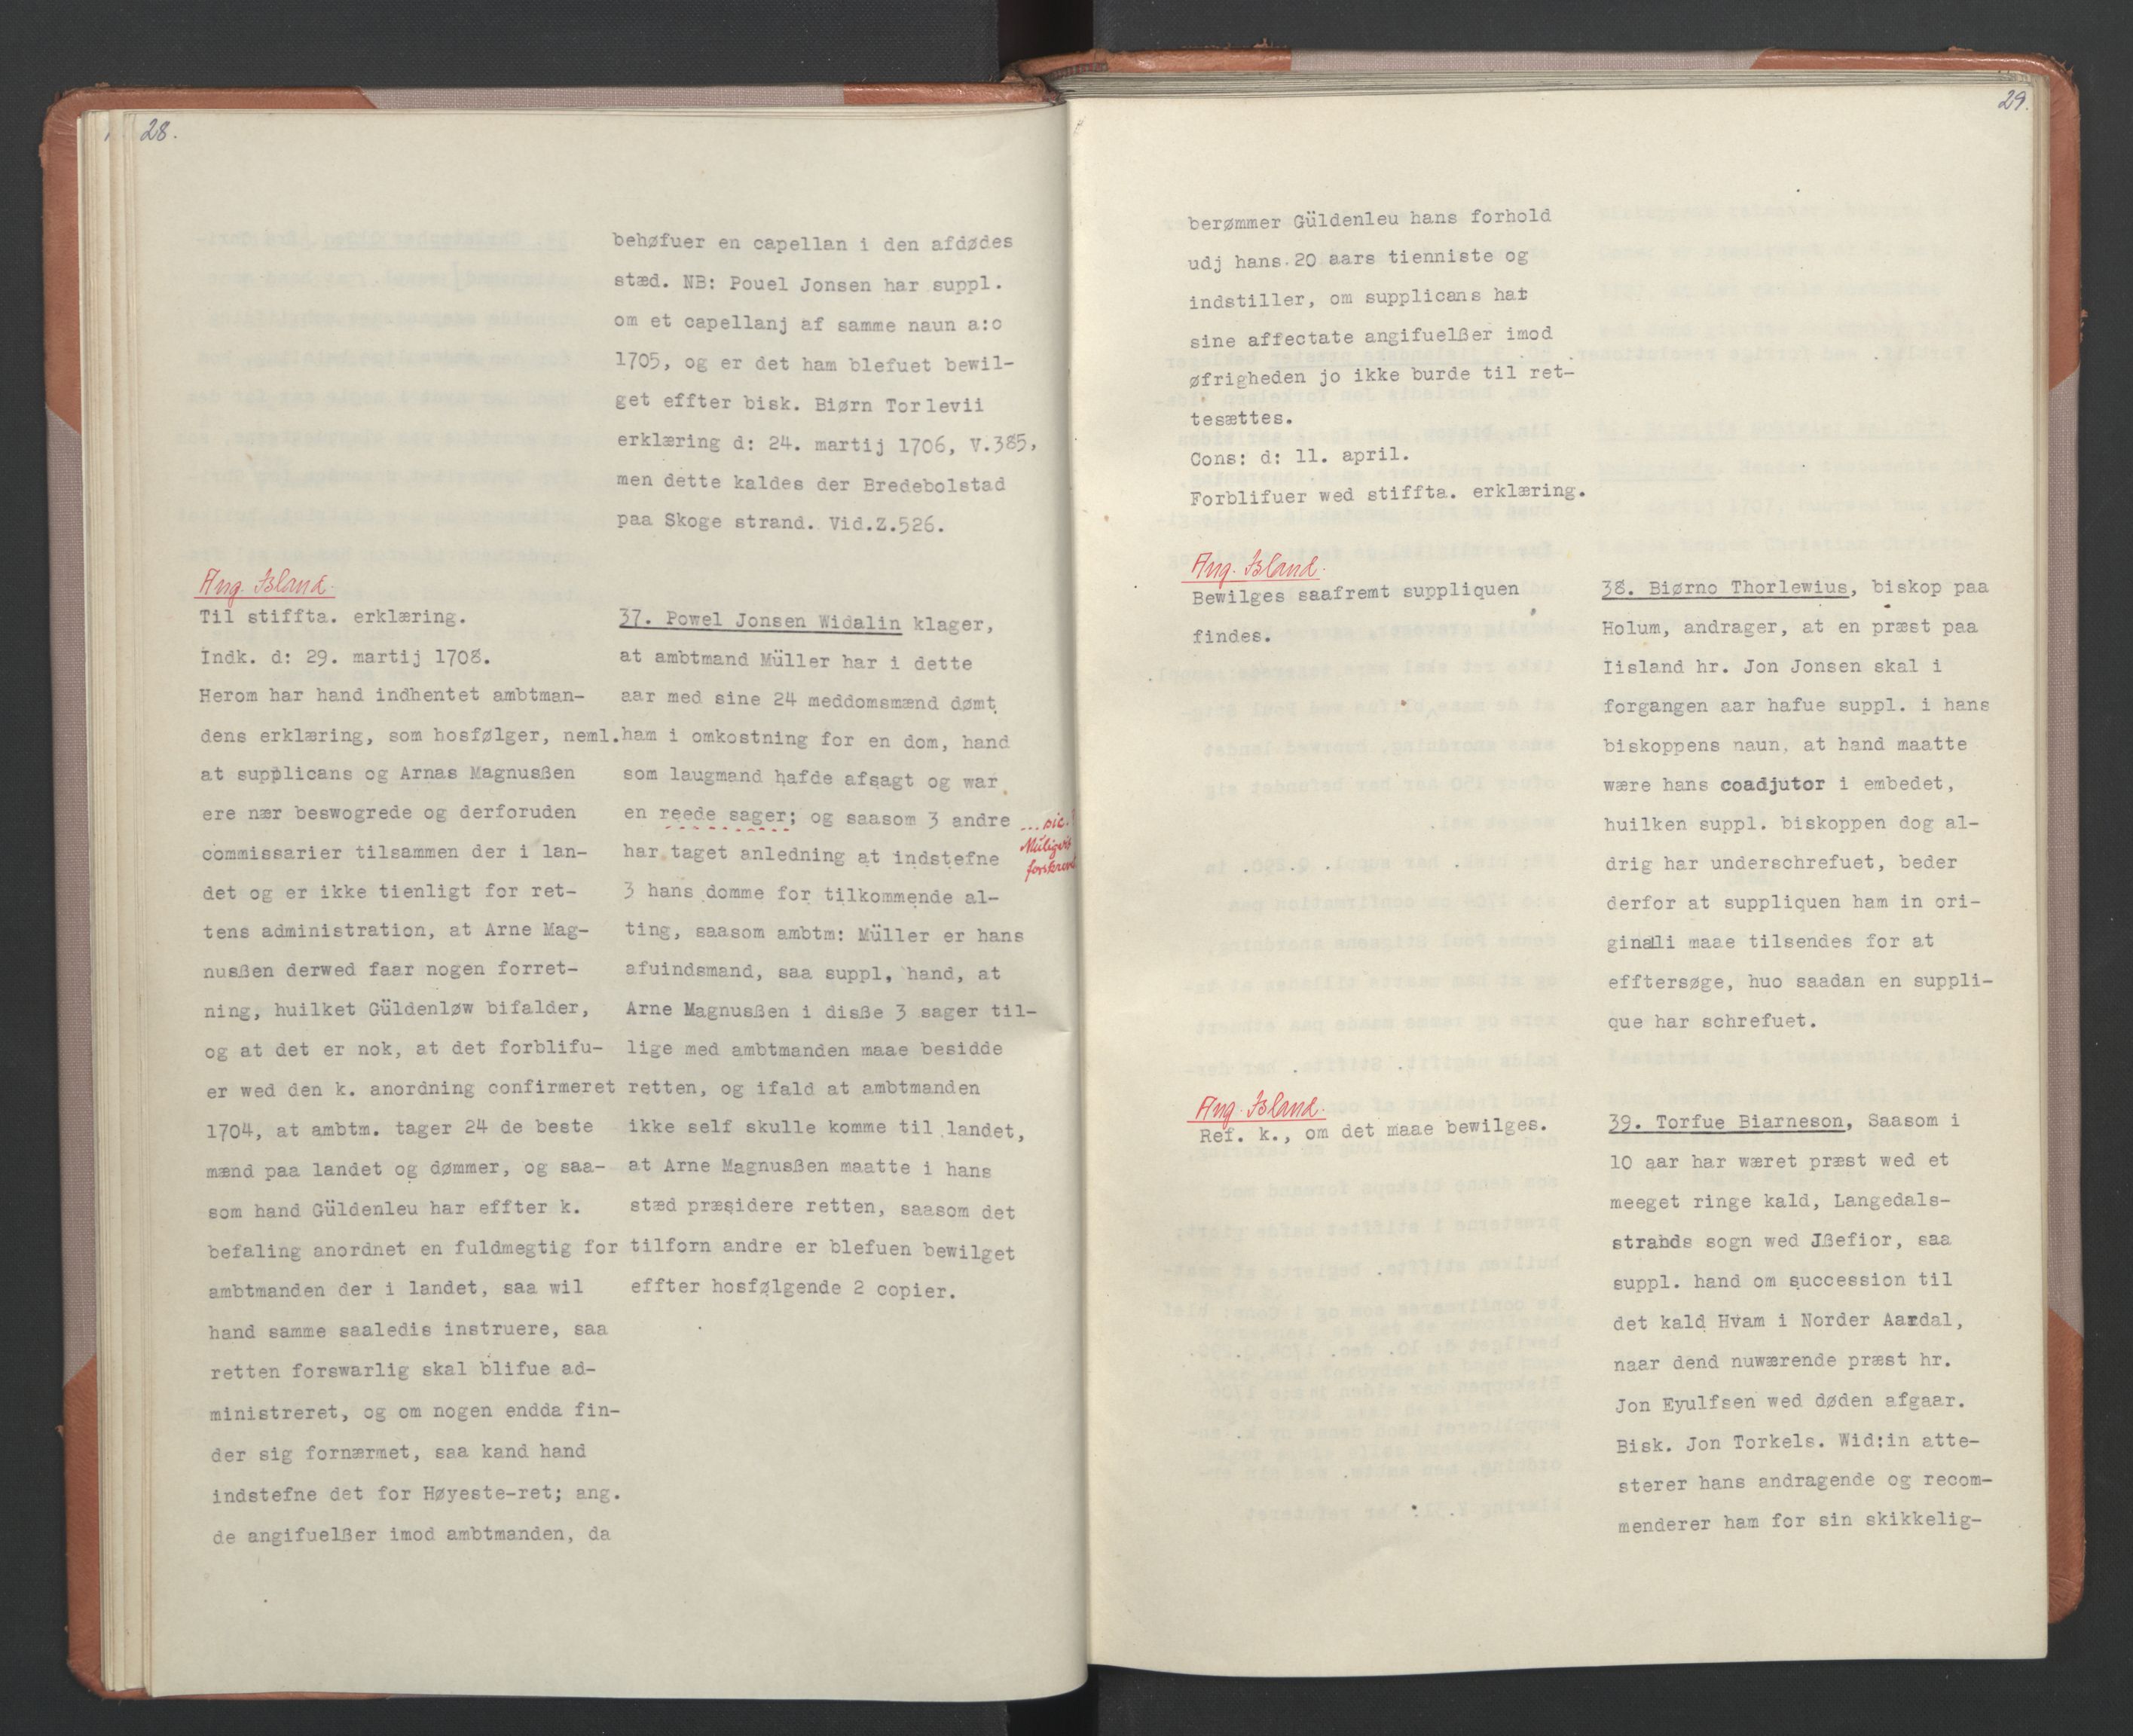 28.
behøfuer en capellan i den afdødes
stæd. NB: Pouel Jonsen har suppl.
om et capellanj af samme naun a:o
1705, og er det ham blefuet bewil-
get effter bisk. Biørn Torlevii
erklæring d: 24. martij 1706, V.385,
men dette kaldes der Bredebolstad
paa Skoge strand. Vid.Z.526.
Ang. Island.
Til stiffta. erklæring.
Indk. d: 29. martij 1708.
Herom har hand indhentet ambtman-
dens erklæring, som hosfølger, neml.
at supplicans og Arnas Magnusßen
ere nær beswogrede og derforuden
commissarier tilsammen der i lan-
det og er ikke tienligt for ret-
tens administration, at Arne Mag-
nusßen derwed faar nogen forret-
ning, huilket Güldenløw bifalder,
og at det er nok, at det forblifu-
er wed den k. anordning confirmeret
1704, at ambtm. tager 24 de beste
mænd paa landet og dømmer, og saa-
som hand Güldenleu har effter k.
befaling anordnet en fuldmegtig for
ambtmanden der i landet, saa wil
hand samme saaledis instruere, saa
retten forswarlig skal blifue ad-
ministreret, og om nogen endda fin-
der sig fornærmet, saa kand hand
indstefne det for Høyeste-ret; ang.
de angifuelßer imod ambtmanden, da
37. Powel Jonsen Widalin klager,
at ambtmand Müller har i dette
aar med sine 24 meddomsmænd dømt
ham i omkostning for en dom, hand
som laugmand hafde afsagt og war
en reede sager; og saasom 3 andre
har taget anledning at indstefne
3 hans domme for tilkommende al-
ting, saasom ambtm: Müller er hans
afuindsmand, saa suppl. hand, at
Arne Magnusßen i disße 3 sager til-
lige med ambtmanden maae besidde
retten, og ifald at ambtmanden
ikke self skulle komme til landet,
at Arne Magnusßen maatte i hans
stæd præsidere retten, saasom det
tilforn andre er blefuen bewilget
effter hosfølgende 2 copier.
... sic.?
Muligvis
forskrevet
29.
berømmer Güldenleu hans forhold
udj hans 20 aars tienniste og
indstiller, om supplicans har
sine affectate angifuelßer imod
øfrigheden jo ikke burde til ret-
tesættes.
Cons: d: 11. april.
Forblifuer wed stiffta. erklæring.
Ang. Island.
Bewilges saafremt suppliquen
findes.
38. Biørno Thorlewius, biskop paa
Holum, andrager, at en præst paa
Iisland hr. Jon Jonsen skal i
forgangen aar hafue suppl. i hans
biskoppens naun, at hand maatte
wære hans coadjutor i embedet,
huilken suppl. biskoppen dog al-
drig har underschrefuet, beder
derfor at suppliquen ham in ori-
ginali maae tilsendes for at
efftersøge, huo saadan en suppli-
que har schrefuet.
Ang. Island.
Ref. k., om det maae bewilges.
39. Torfue Biarneson, Saasom i
10 aar har wæret præst wed et
meeget ringe kald, Langedals-
strands sogn wed Jßefior, saa
suppl. hand om succession til
det kald Hvam i Norder Aardal,
naar dend nuwærende præst hr.
Jon Eyulfsen wed døden afgaar.
Bisk. Jon Torkels. Wid:in atte-
sterer hans andragende og recom-
menderer ham for sin skikkelig-